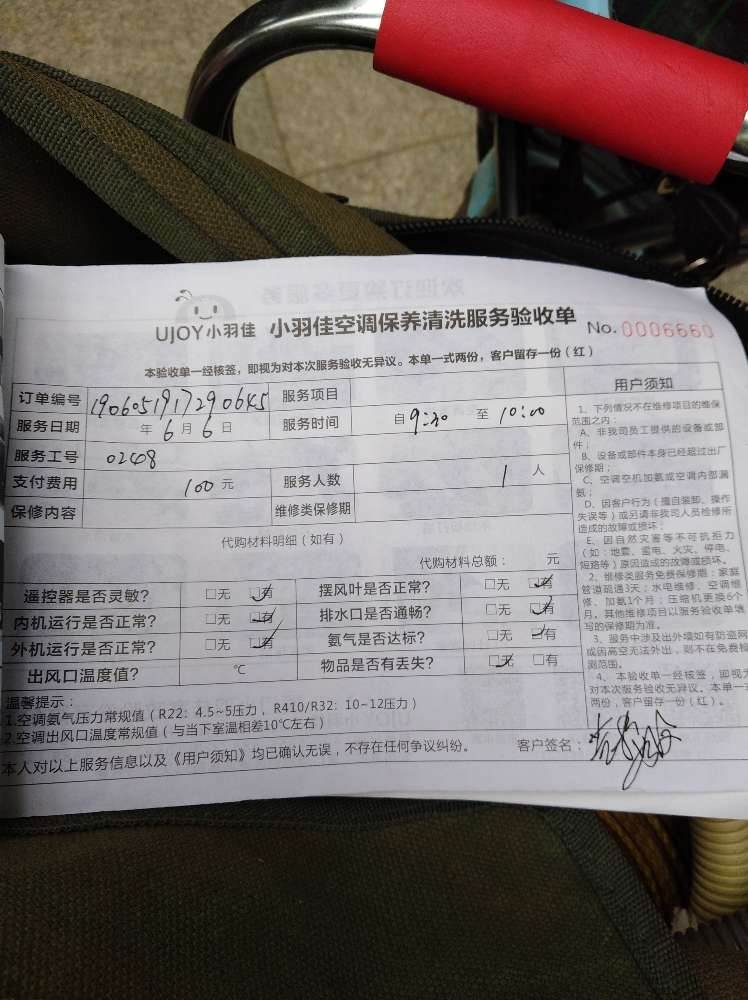 UJOY小羽佳 小羽佳空调保养清洗服务验收单 No. 0006660
本验收单一经核签，即视为对本次服务验收无异议。本单一式两份，客户留存一份（红）
订单编号 190605191729064S 服务项目
服务日期 年 6 月 6 日 服务时间 自 9:30 至 10:00
服务工号 0248
支付费用 100 元 服务人数 1 人
保修内容 维修类保修期
代购材料明细（如有）
代购材料总额： 元
遥控器是否灵敏？ □无 ☑有 摆风叶是否正常？ □无 ☑有
内机运行是否正常？ □无 ☑有 排水口是否通畅？ □无 ☑有
外机运行是否正常？ □无 ☑有 氨气是否达标？ □无 ☑有
出风口温度值？ ℃ 物品是否有丢失？ ☑无 □有
温馨提示：
1.空调氨气压力常规值（R22：4.5~5压力，R410/R32：10~12压力）
2.空调出风口温度常规值（与当下室温相差10℃左右）
本人对以上服务信息以及《用户须知》均已确认无误，不存在任何争议纠纷。 客户签名：
用户须知
1、下列情况不在维修项目的维保
范围之内：
A、非我司员工提供的设备或部
件；
B、设备或部件本身已经超过出厂
保修期；
C、空调空机加氨或空调内部漏
氨；
D、因客户行为（擅自装卸、操作
失误等）或另请非我司人员检修所
造成的故障或损坏；
E、因自然灾害等不可抗拒力
（如：地震、雷电、火灾、停电、
短路等）原因造成的故障或损坏。
2、维修类服务免费保修期：家庭
管道疏通3天；水电维修、空调维
修、加氨1个月；压缩机更换6个
月。其他维修项目以服务验收单填
写的保修期为准。
3、服务中涉及出外墙如有防盗网
或因高空无法外出，则不在免费检
测范围。
4、本验收单一经核签，即视为
对本次服务验收无异议。本单一式
两份，客户留存一份（红）。